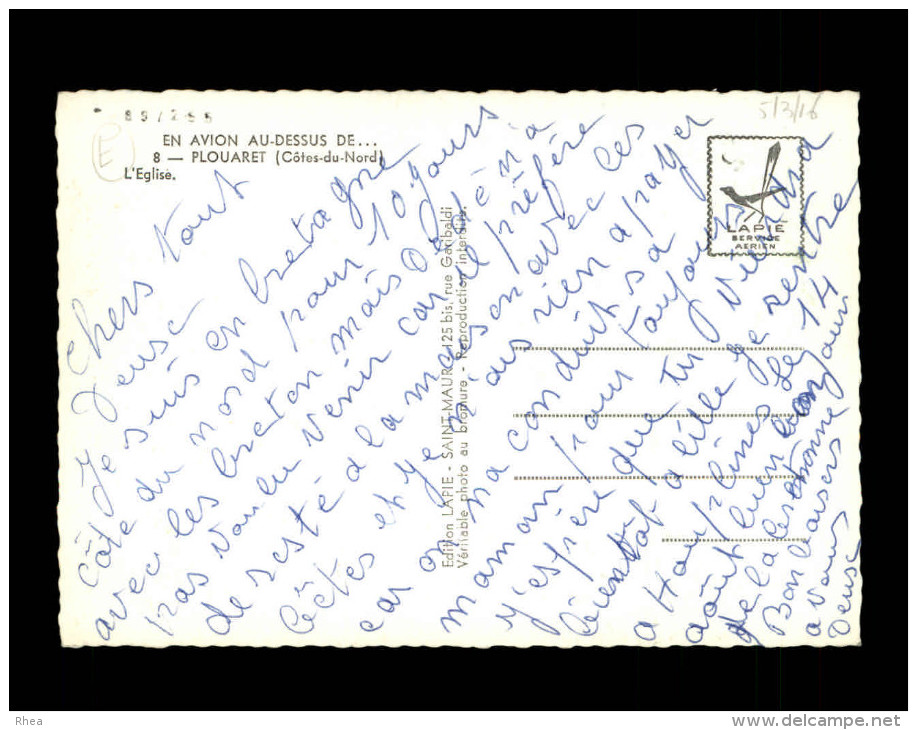 89/255
5/3/16
E
EN AVION AU-DESSUS DE...
8 — PLOUARET (Côtes-du-Nord)
L'Eglise.
LAPIE
SERVICE
AERIEN
Edition LAPIE - SAINT-MAUR - 125 bis, rue Garibaldi
Véritable photo au bromure. - Reproduction interdite.
Chers tout
Je suis en bretagne
côte du nord pour 10 jours
avec les breton mais Dédé n a
pas voulu venir car il préfère
de resté a la maison avec ces
et je ai rien a payer
car on ma conduit sa
maman pour toujours
j'espère que tu viendra
bientot a lille je rentre
a Houplines le 14
août
de la
Bon baisers
a vous
Rhea
www.delcampe.net